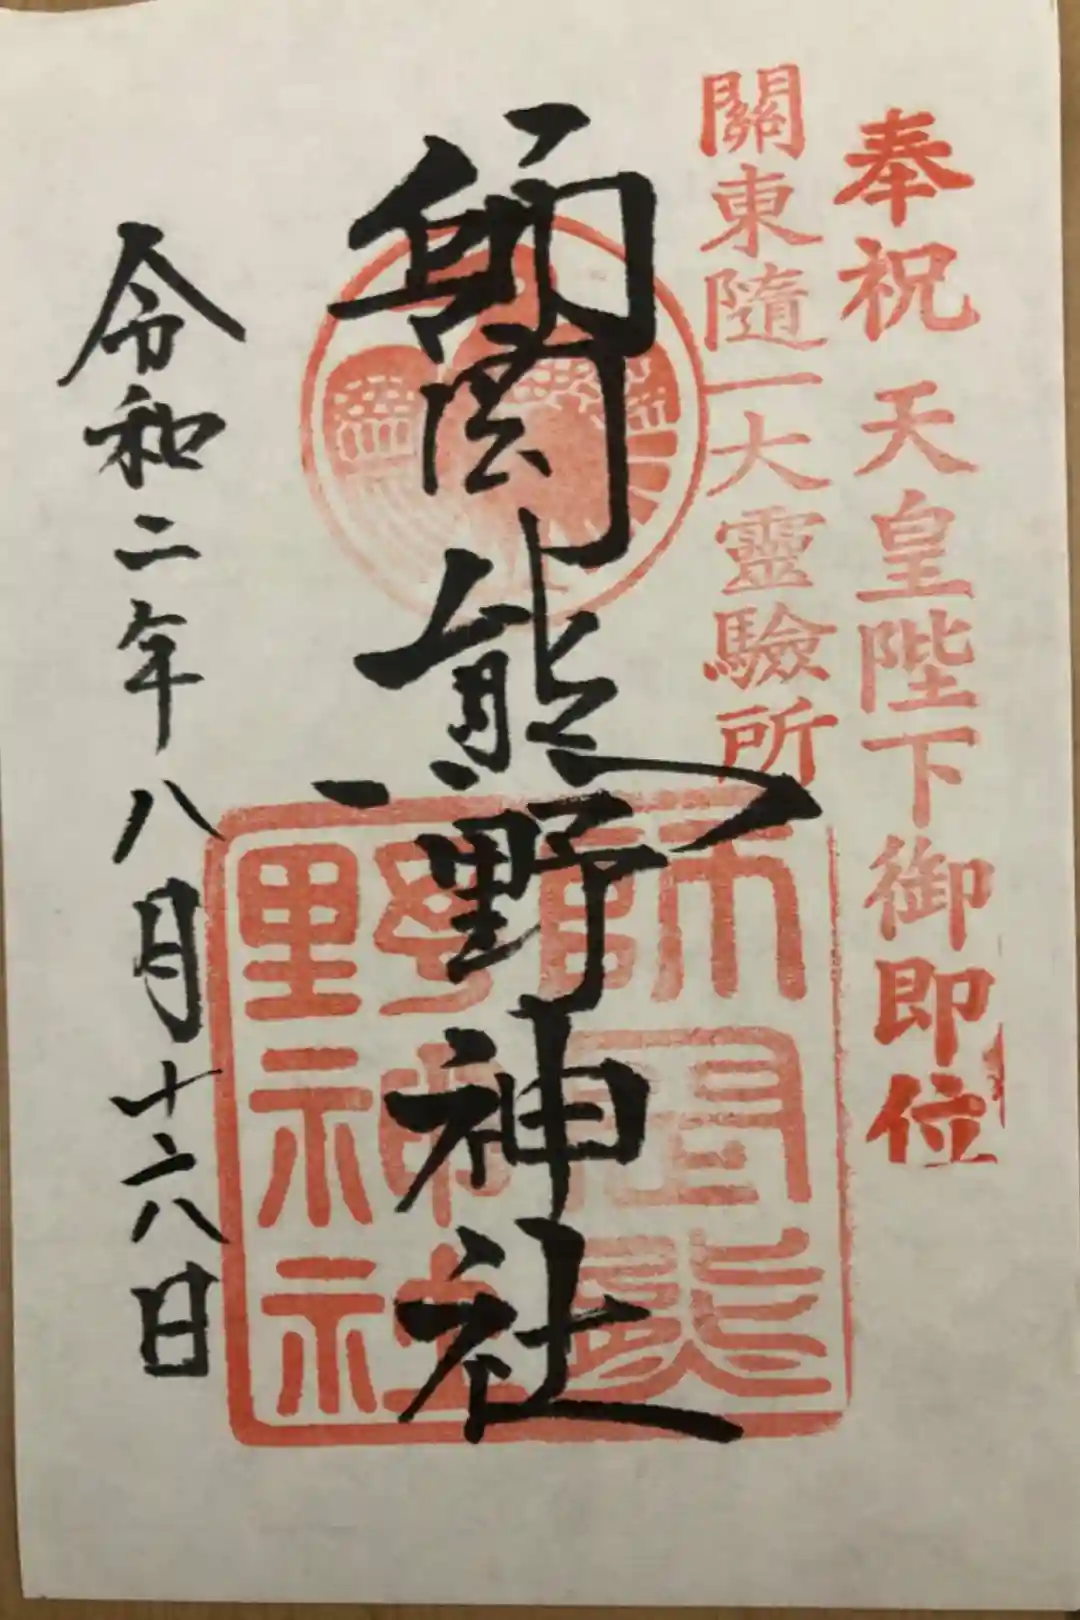 奉祝 天皇陛下御即位
關東隨一大靈驗所
師岡熊野神社
師岡熊
野神社
令和二年八月十六日